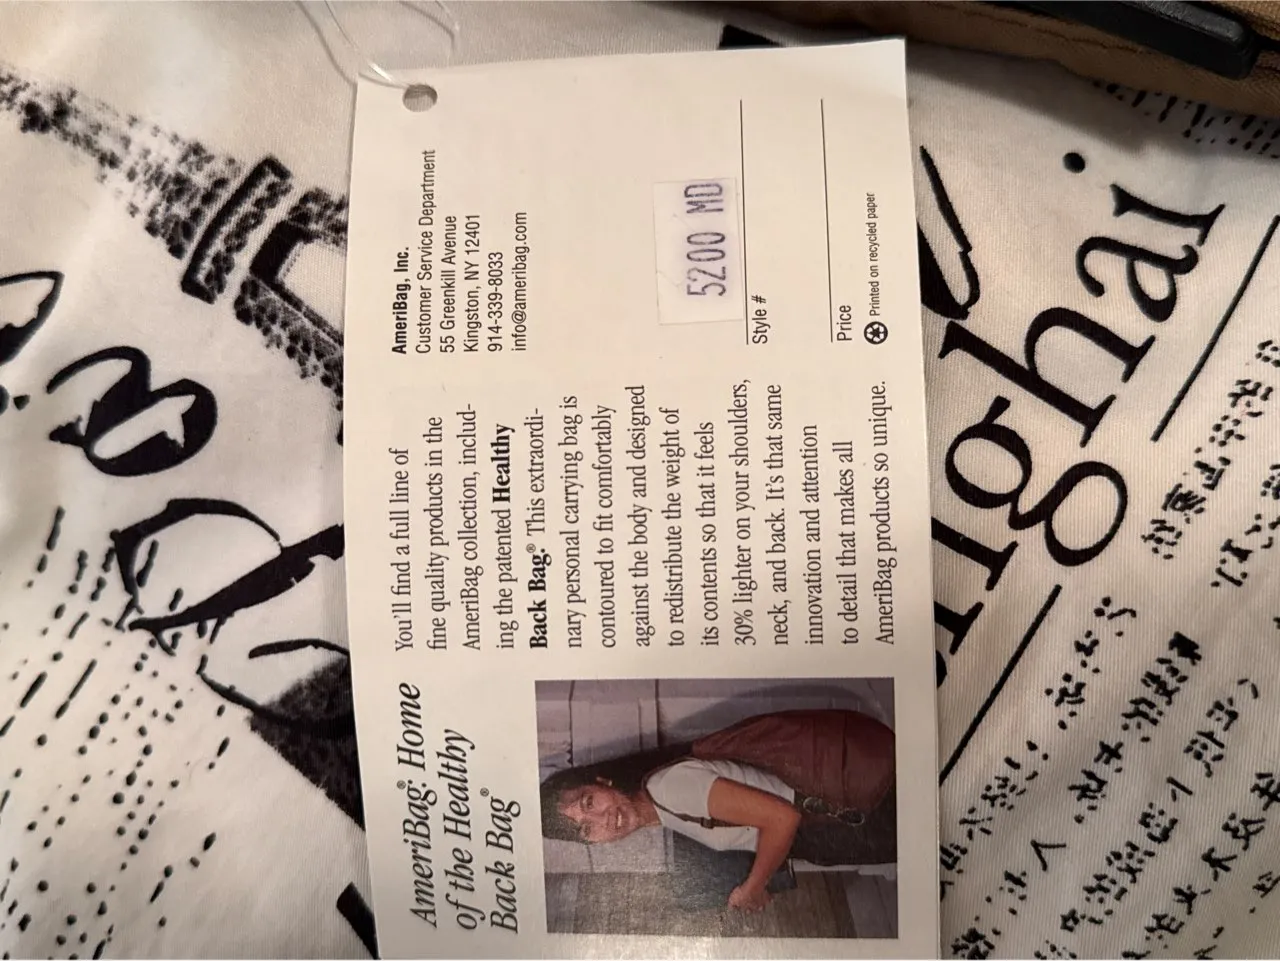 AmeriBag®: Home
of the Healthy
Back Bag®
You'll find a full line of
fine quality products in the
AmeriBag collection, includ-
ing the patented Healthy
Back Bag.® This extraordi-
nary personal carrying bag is
contoured to fit comfortably
against the body and designed
to redistribute the weight of
its contents so that it feels
30% lighter on your shoulders,
neck, and back. It's that same
innovation and attention
to detail that makes all
AmeriBag products so unique.
AmeriBag, Inc.
Customer Service Department
55 Greenkill Avenue
Kingston, NY 12401
914-339-8033
info@ameribag.com
5200 MD
Style #
Price
Printed on recycled paper